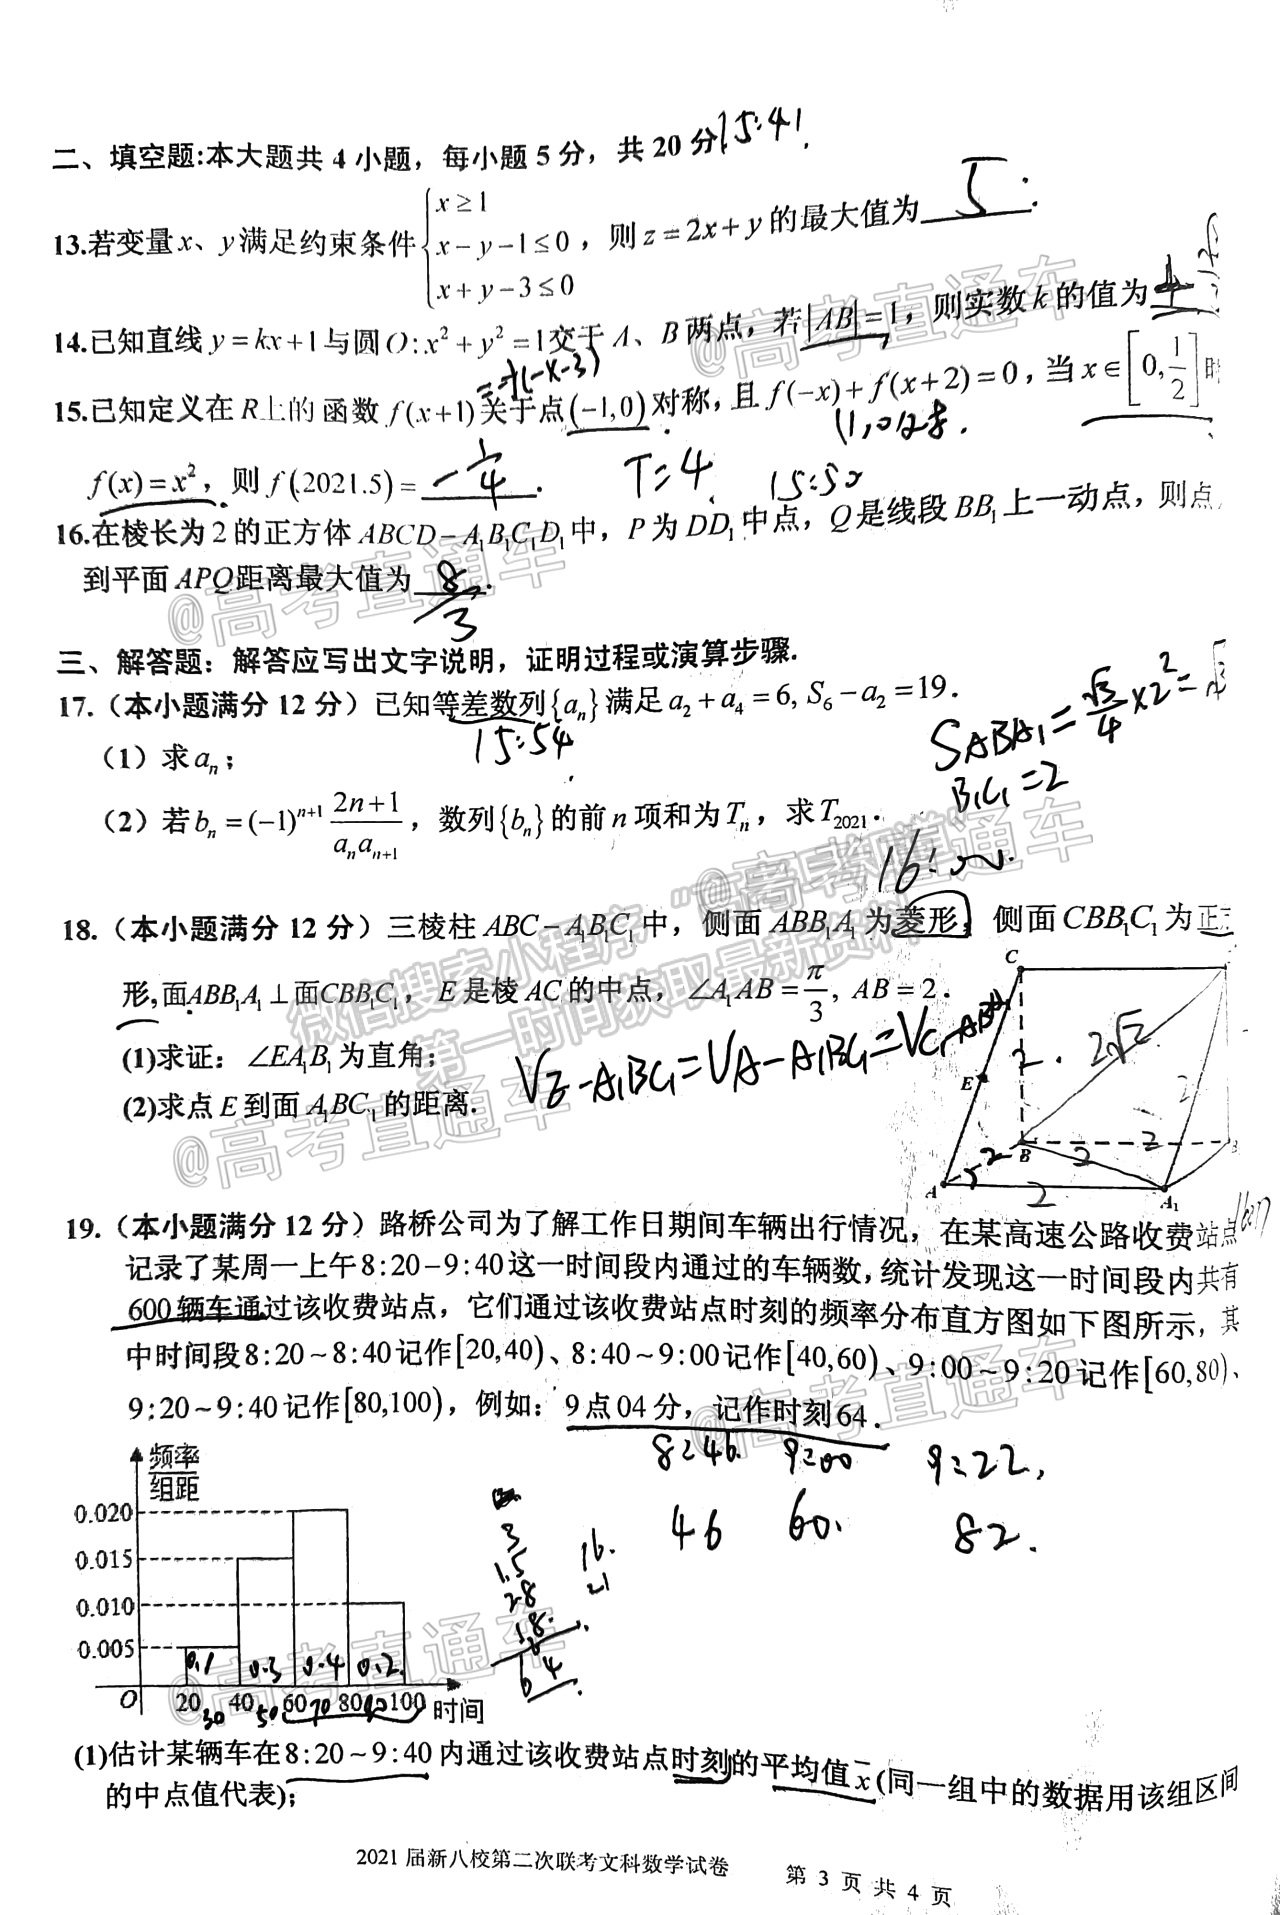 15:41
二、填空题:本大题共 4 小题，每小题 5 分，共 20 分.
13.若变量 x、y 满足约束条件 { x ≥ 1
x − y − 1 ≤ 0
x + y − 3 ≤ 0 ，则 z = 2x + y 的最大值为 5 .
14.已知直线 y = kx + 1 与圆 O: x² + y² = 1 交于 A、B 两点，若 |AB| = 1，则实数 k 的值为
15.已知定义在 R 上的函数 f(x+1) 关于点 (−1,0) 对称，且 f(−x) + f(x+2) = 0，当 x ∈ [0, 1/2] 时
f(x) = x²，则 f(2021.5) = −1/4 .
T=4
15:50
16.在棱长为 2 的正方体 ABCD − A₁B₁C₁D₁ 中，P 为 DD₁ 中点，Q 是线段 BB₁ 上一动点，则点
到平面 APQ 距离最大值为 8/3 .
三、解答题：解答应写出文字说明，证明过程或演算步骤.
17.（本小题满分 12 分）已知等差数列{aₙ}满足 a₂ + a₄ = 6, S₆ − a₂ = 19 .
15:54
（1）求 aₙ；
S ABA₁ = √3/4 × 2² = √3
B₁C₁ = 2
（2）若 bₙ = (−1)ⁿ⁺¹ (2n+1)/(aₙaₙ₊₁)，数列{bₙ}的前 n 项和为 Tₙ，求 T₂₀₂₁ .
18.（本小题满分 12 分）三棱柱 ABC − A₁B₁C₁ 中，侧面 ABB₁A₁ 为菱形，侧面 CBB₁C₁ 为正方
形,面ABB₁A₁ ⊥ 面CBB₁C₁， E 是棱 AC 的中点，∠A₁AB = π/3, AB = 2 .
(1)求证：∠EA₁B₁ 为直角；
(2)求点 E 到面 A₁BC₁ 的距离.
C
E
B
A
A₁
2
2√2
2
2
2
2
19.（本小题满分 12 分）路桥公司为了解工作日期间车辆出行情况，在某高速公路收费站点
记录了某周一上午 8:20−9:40 这一时间段内通过的车辆数，统计发现这一时间段内共有
600 辆车通过该收费站点，它们通过该收费站点时刻的频率分布直方图如下图所示，其
中时间段 8:20~8:40 记作 [20,40)、8:40~9:00 记作 [40,60)、9:00~9:20 记作 [60,80)、
9:20~9:40 记作 [80,100)，例如：9 点 04 分，记作时刻 64 .
8:46. 9:00 9:22.
46 60. 82.
频率
组距
0.020
0.015
0.010
0.005
0.1 0.3 0.4 0.2
O 20 40 60 80 100 时间
30 50 70
3
1.5
28
18
64
16.
21
(1)估计某辆车在 8:20~9:40 内通过该收费站点时刻的平均值 x̄ (同一组中的数据用该组区间
的中点值代表);
2021 届新八校第二次联考文科数学试卷 第 3 页 共 4 页
@高考直通车
微信搜索小程序“高考直通车”
第一时间获取最新资料